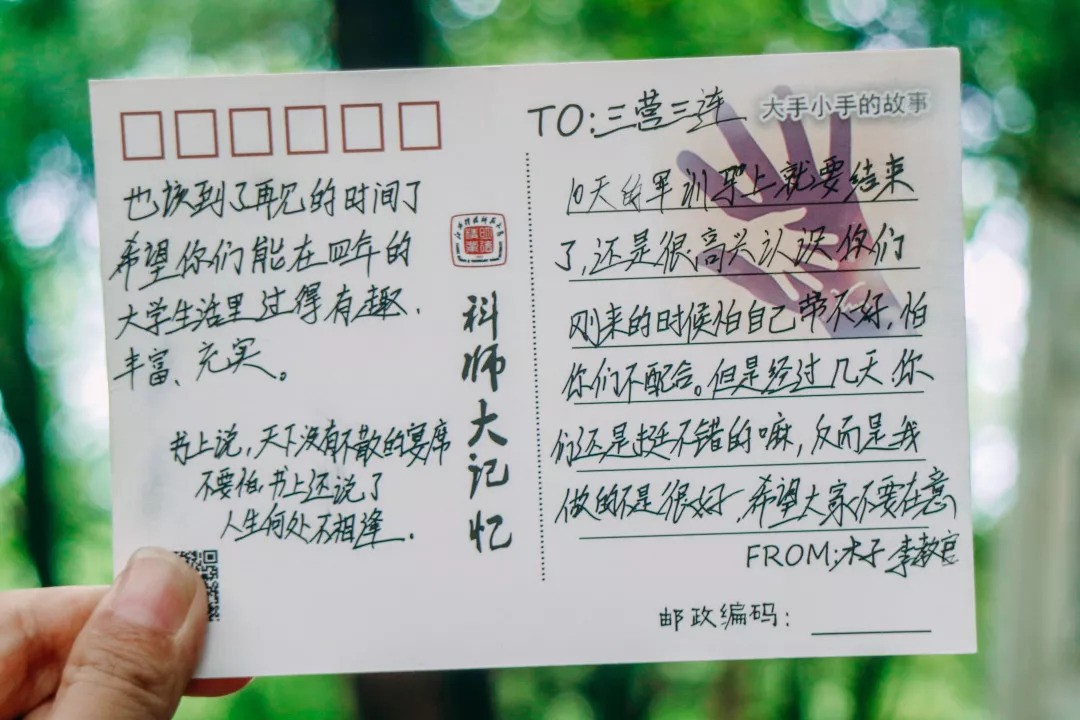 TO:三营三连
大手小手的故事
10天的军训马上就要结束
了,还是很高兴认识你们
刚来的时候怕自己带不好,怕
你们不配合。但是经过几天,你
们还是挺不错的嘛,反而是我
做的不是很好,希望大家不要在意
FROM:木子李教官
邮政编码:
也该到了再见的时间了
希望你们能在四年的
大学生活里过得有趣、
丰富、充实。
书上说,天下没有不散的宴席
不要怕,书上还说了
人生何处不相逢.
科师大记忆